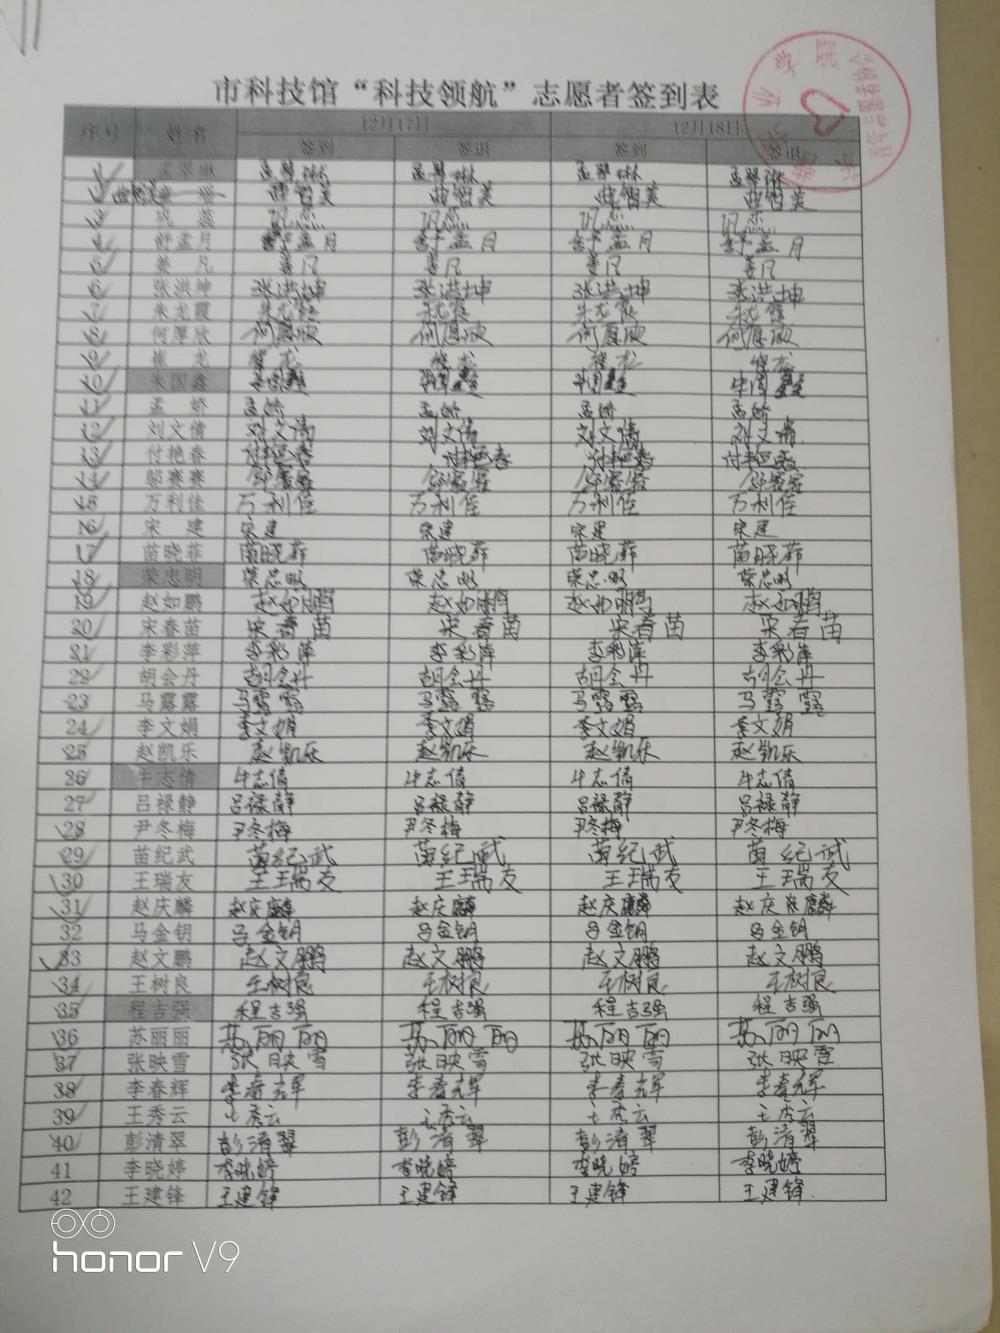 市科技馆“科技领航”志愿者签到表
序号 姓名 12月17日 12月18日
签到 签退 签到 签退
1 孟翠琳 孟翠琳 孟翠琳 孟翠琳
2 曲智美 曲智美 曲智美 曲智美 曲智美
3 巩蕊
4 舒孟月 舒孟月 舒孟月 舒孟月 舒孟月
5 姜凡 姜凡 姜凡 姜凡 姜凡
6 张洪坤 张洪坤 张洪坤 张洪坤 张洪坤
7 朱龙霞 朱龙霞 朱龙霞 朱龙霞 朱龙霞
8 何厚欣 何厚欣 何厚欣 何厚欣 何厚欣
9 崔龙 崔龙 崔龙 崔龙 崔龙
10 朱国鑫
11 孟娇 孟娇 孟娇 孟娇 孟娇
12 刘文倩 刘文倩 刘文倩 刘文倩 刘文倩
13 付艳春 付艳春 付艳春 付艳春 付艳春
14 邬赛赛
15 万利佳 万利佳 万利佳 万利佳 万利佳
16 宋建 宋建 宋建 宋建 宋建
17 苗晓菲 苗晓菲 苗晓菲 苗晓菲 苗晓菲
18 荣忠明 荣忠明 荣忠明 荣忠明 荣忠明
19 赵如鹏 赵如鹏 赵如鹏 赵如鹏 赵如鹏
20 宋春苗 宋春苗 宋春苗 宋春苗 宋春苗
21 李彩萍 李彩萍 李彩萍 李彩萍 李彩萍
22 胡会丹 胡会丹 胡会丹 胡会丹 胡会丹
23 马露露 马露露 马露露 马露露 马露露
24 李文娟 李文娟 李文娟 李文娟 李文娟
25 赵凯乐 赵凯乐 赵凯乐 赵凯乐 赵凯乐
26 牛志倩 牛志倩 牛志倩 牛志倩 牛志倩
27 吕禄静 吕禄静 吕禄静 吕禄静 吕禄静
28 尹冬梅 尹冬梅 尹冬梅 尹冬梅 尹冬梅
29 苗纪武 苗纪武 苗纪武 苗纪武 苗纪武
30 王瑞友 王瑞友 王瑞友 王瑞友 王瑞友
31 赵庆麟 赵庆麟 赵庆麟 赵庆麟 赵庆麟
32 马金钥 马金钥 马金钥 马金钥 马金钥
33 赵文鹏 赵文鹏 赵文鹏 赵文鹏 赵文鹏
34 王树良 王树良 王树良 王树良 王树良
35 程吉强 程吉强 程吉强 程吉强 程吉强
36 苏丽丽 苏丽丽 苏丽丽 苏丽丽 苏丽丽
37 张映雪 张映雪 张映雪 张映雪 张映雪
38 李春辉 李春辉 李春辉 李春辉 李春辉
39 王秀云 王秀云 王秀云 王秀云 王秀云
40 彭清翠 彭清翠 彭清翠 彭清翠 彭清翠
41 李晓婷 李晓婷 李晓婷 李晓婷 李晓婷
42 王建锋 王建锋 王建锋 王建锋 王建锋
honor V9